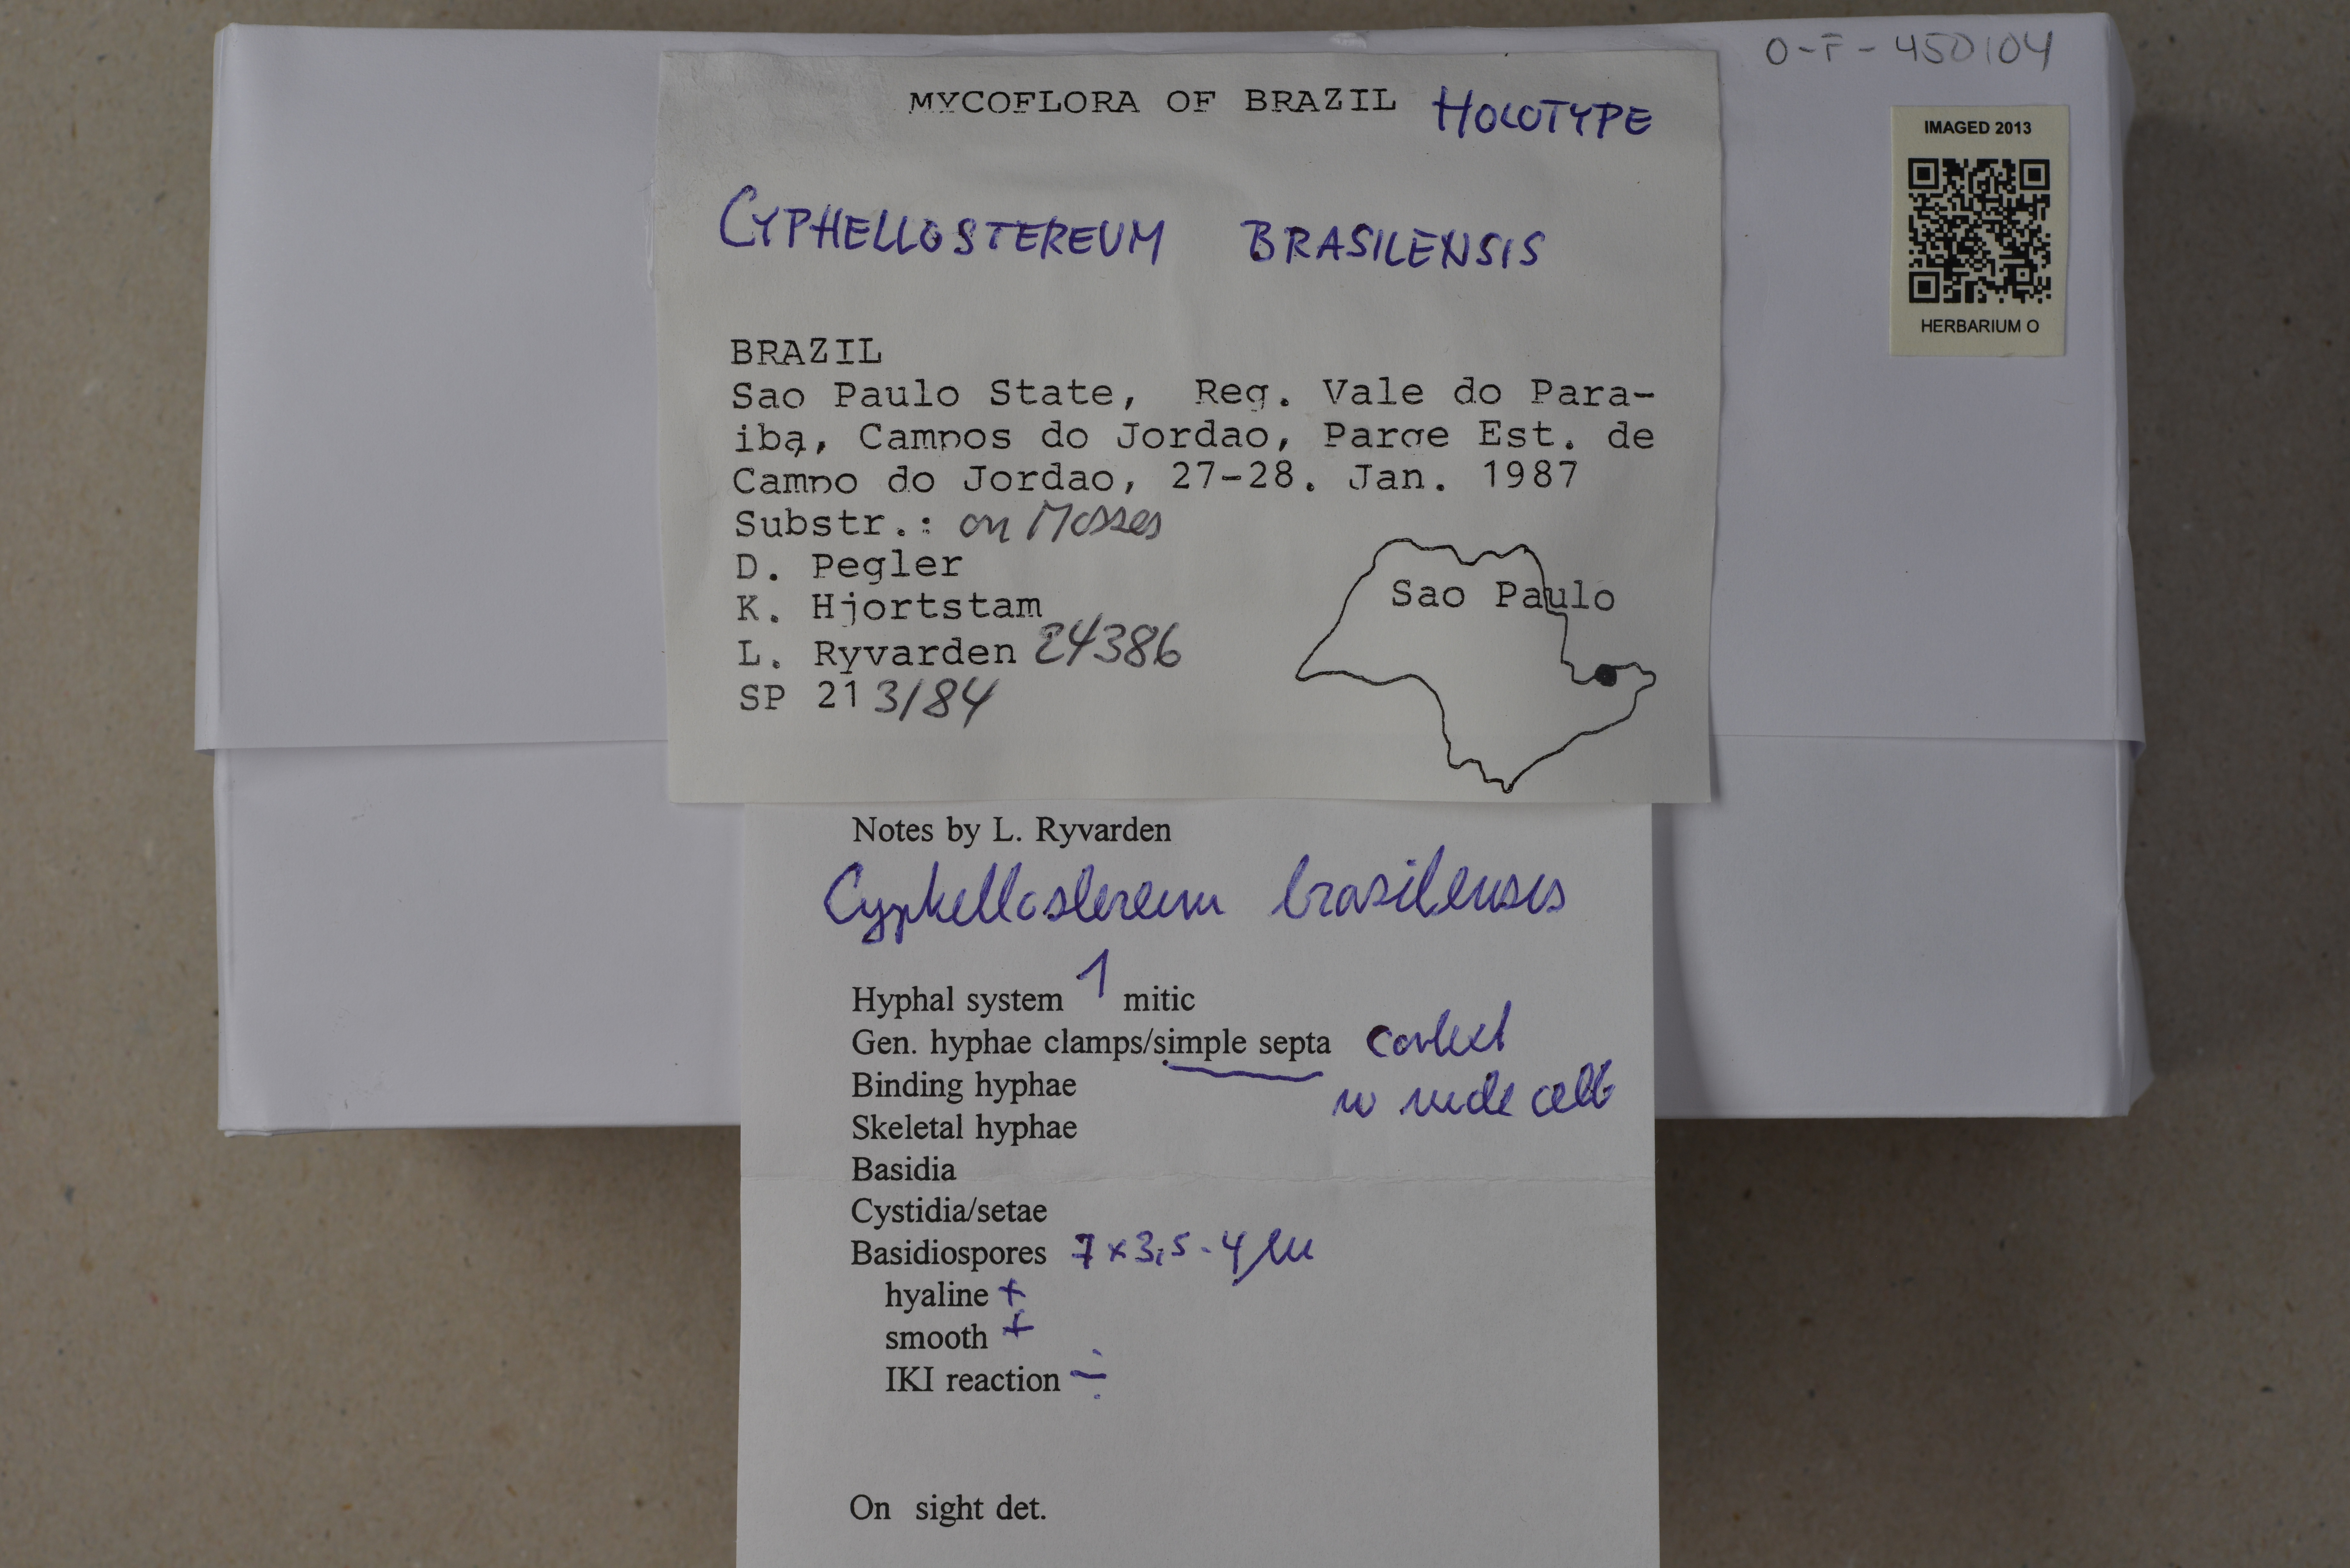 O-F-450104
IMAGED 2013
HERBARIUM O
MYCOFLORA OF BRAZIL HOLOTYPE
CYPHELLOSTEREUM BRASILENSIS
BRAZIL
Sao Paulo State, Reg. Vale do Para-
iba, Campos do Jordao, Parqe Est. de
Campo do Jordao, 27-28. Jan. 1987
Substr.: on Mosses
D. Pegler
K. Hjortstam
L. Ryvarden 24386
SP 213184
Sao Paulo
Notes by L. Ryvarden
Cyphellostereum brasilensis
Hyphal system 1 mitic
Gen. hyphae clamps/simple septa context
Binding hyphae
Skeletal hyphae
Basidia
Cystidia/setae
Basidiospores 7 x 3,5-4 µm
hyaline +
smooth +
IKI reaction ÷
On sight det.